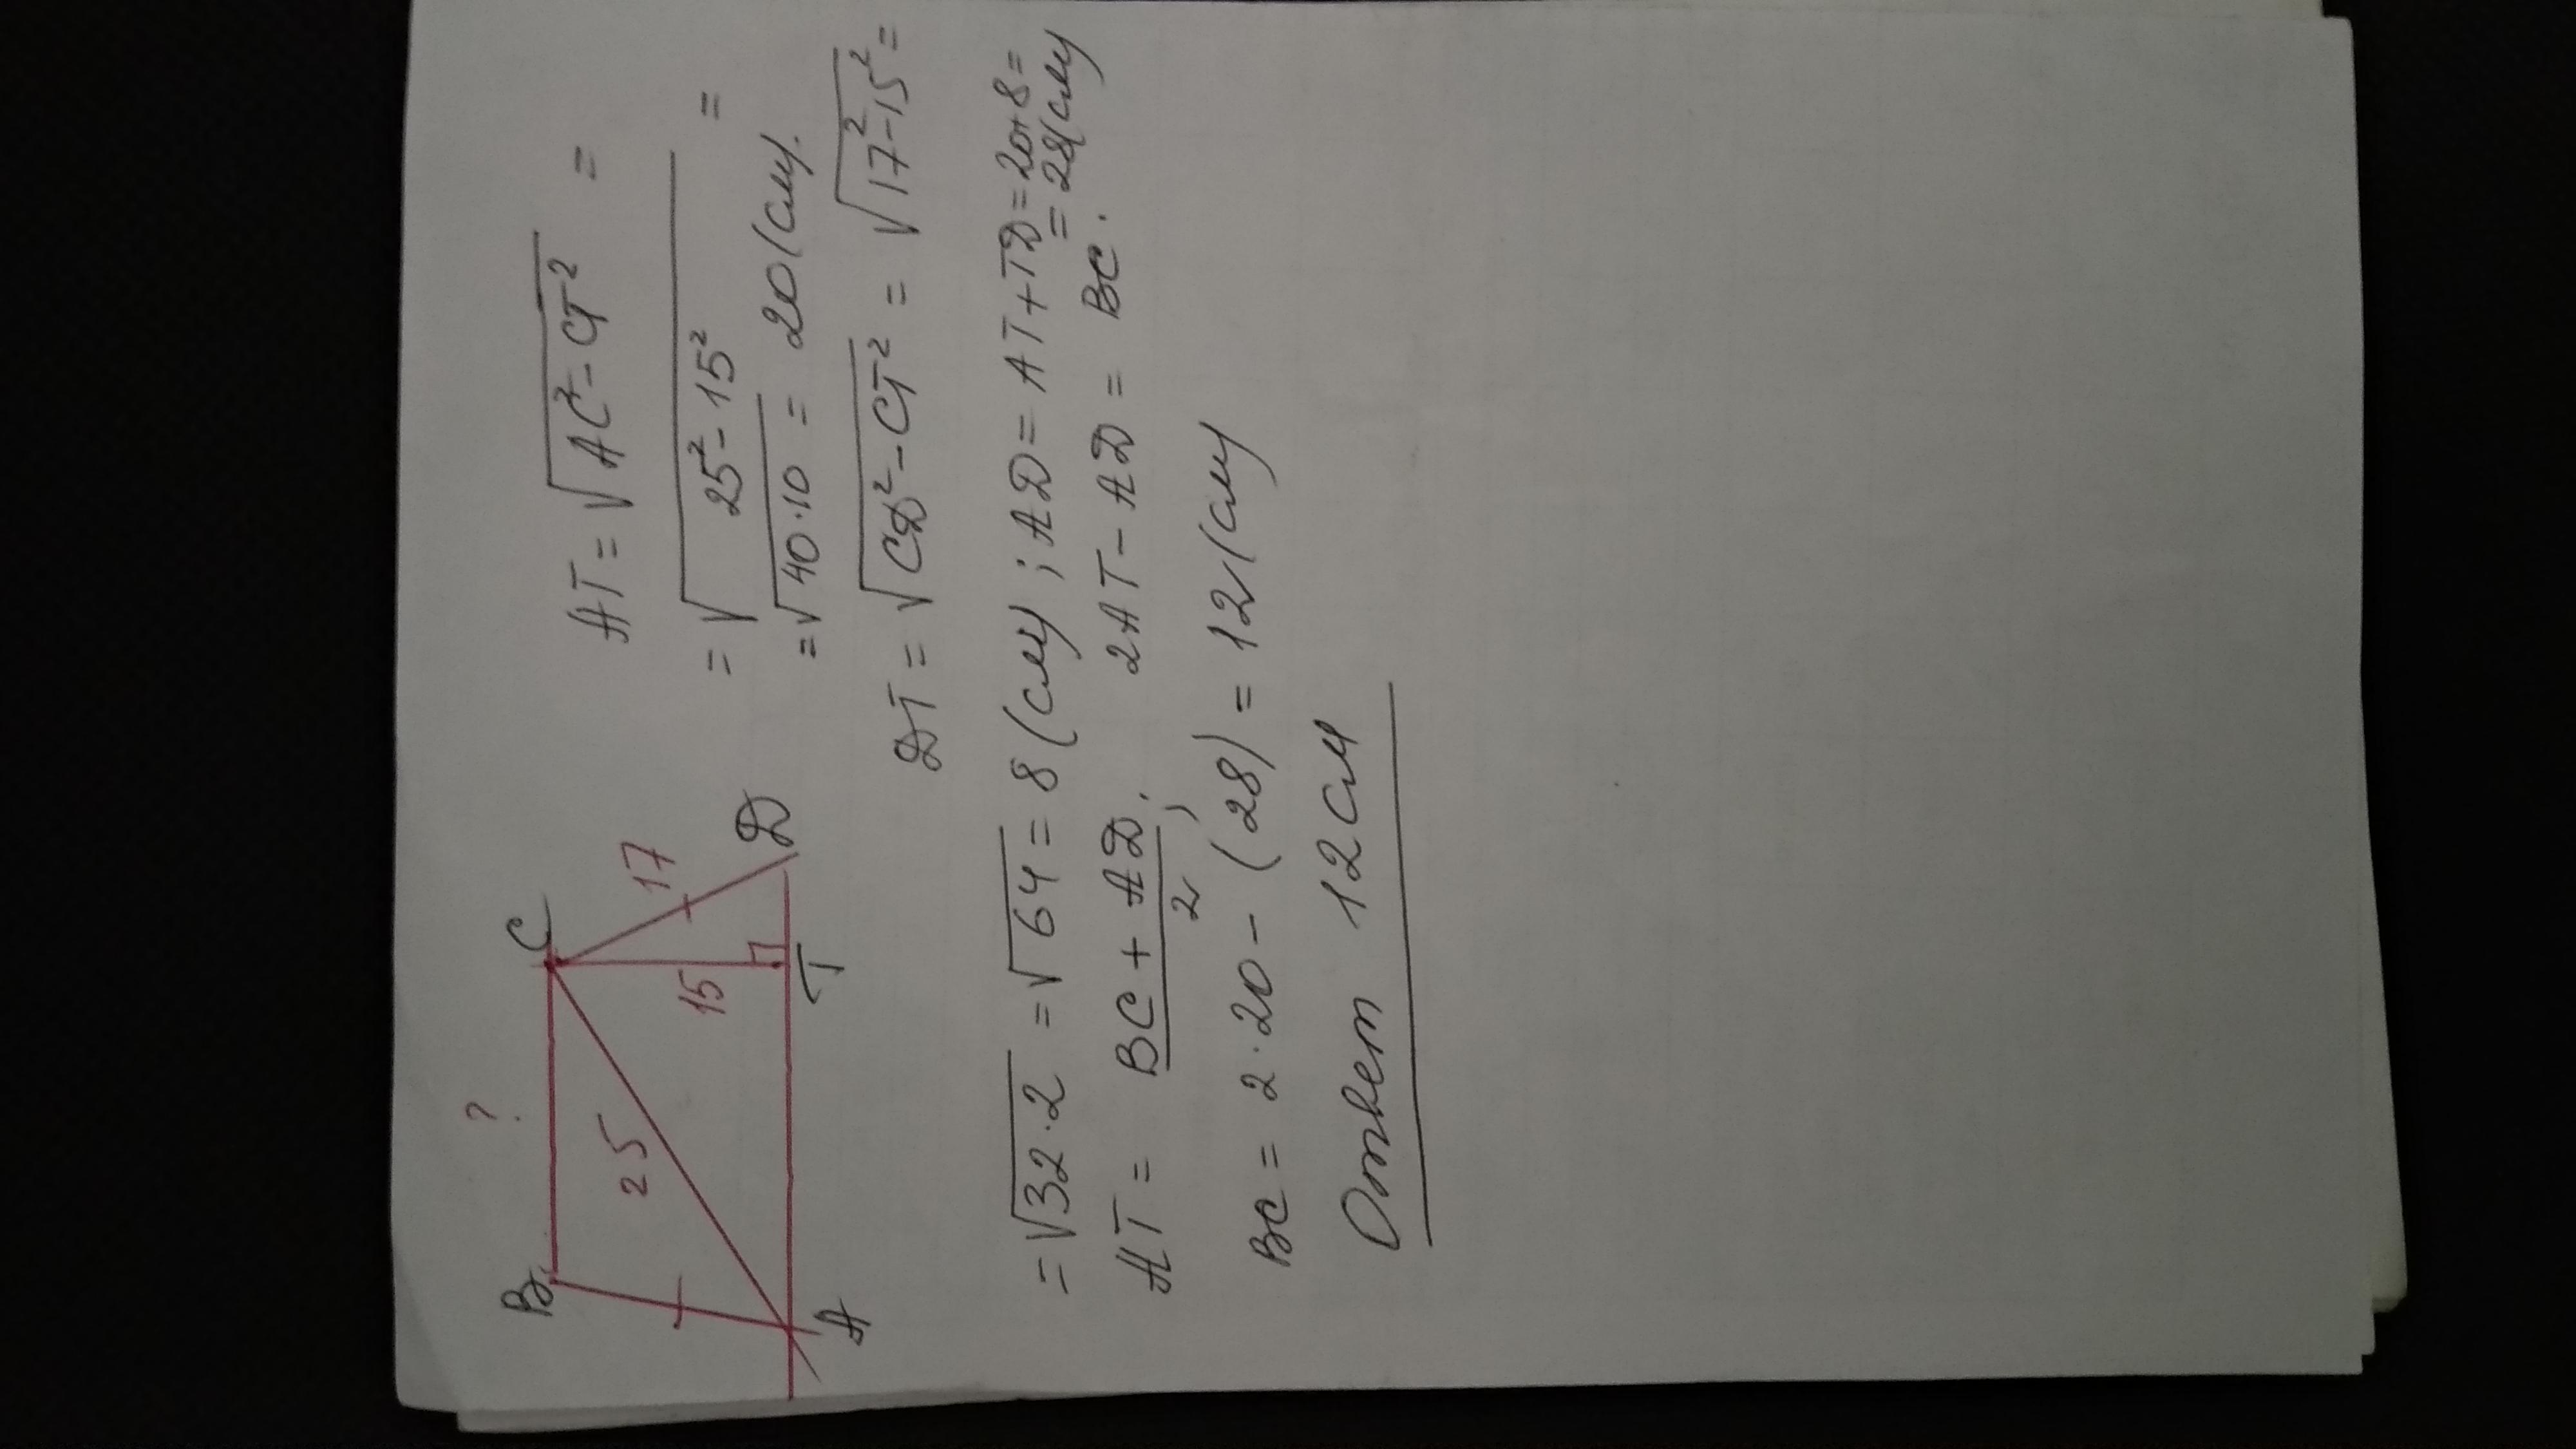 ?
B C
25 15 17
A T D
AT = √AC² - CT² =
= √25² - 15² =
= √40·10 = 20 (см).
DT = √CD² - CT² = √17² - 15² =
= √32·2 = √64 = 8 (см) ; AD = AT + TD = 20 + 8 =
= 28 (см)
AT = BC + AD / 2 ; 2AT - AD = BC.
BC = 2·20 - (28) = 12 (см)
Ответ 12 см